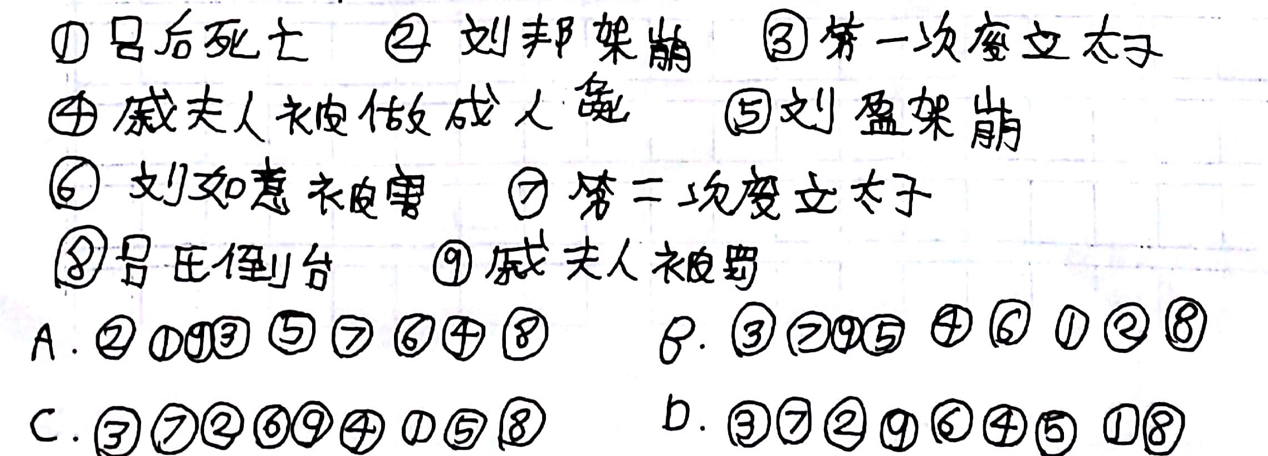 ①吕后死亡 ②刘邦架崩 ③第一次废立太子
④戚夫人被做成人彘 ⑤刘盈架崩
⑥刘如意被害 ⑦第二次废立太子
⑧吕氏倒台 ⑨戚夫人被罚
A.②①⑨③⑤⑦⑥④⑧ B.③⑦⑨⑤④⑥①②⑧
C.③⑦②⑥⑨④①⑤⑧ D.③⑦②⑨⑥④⑤①⑧